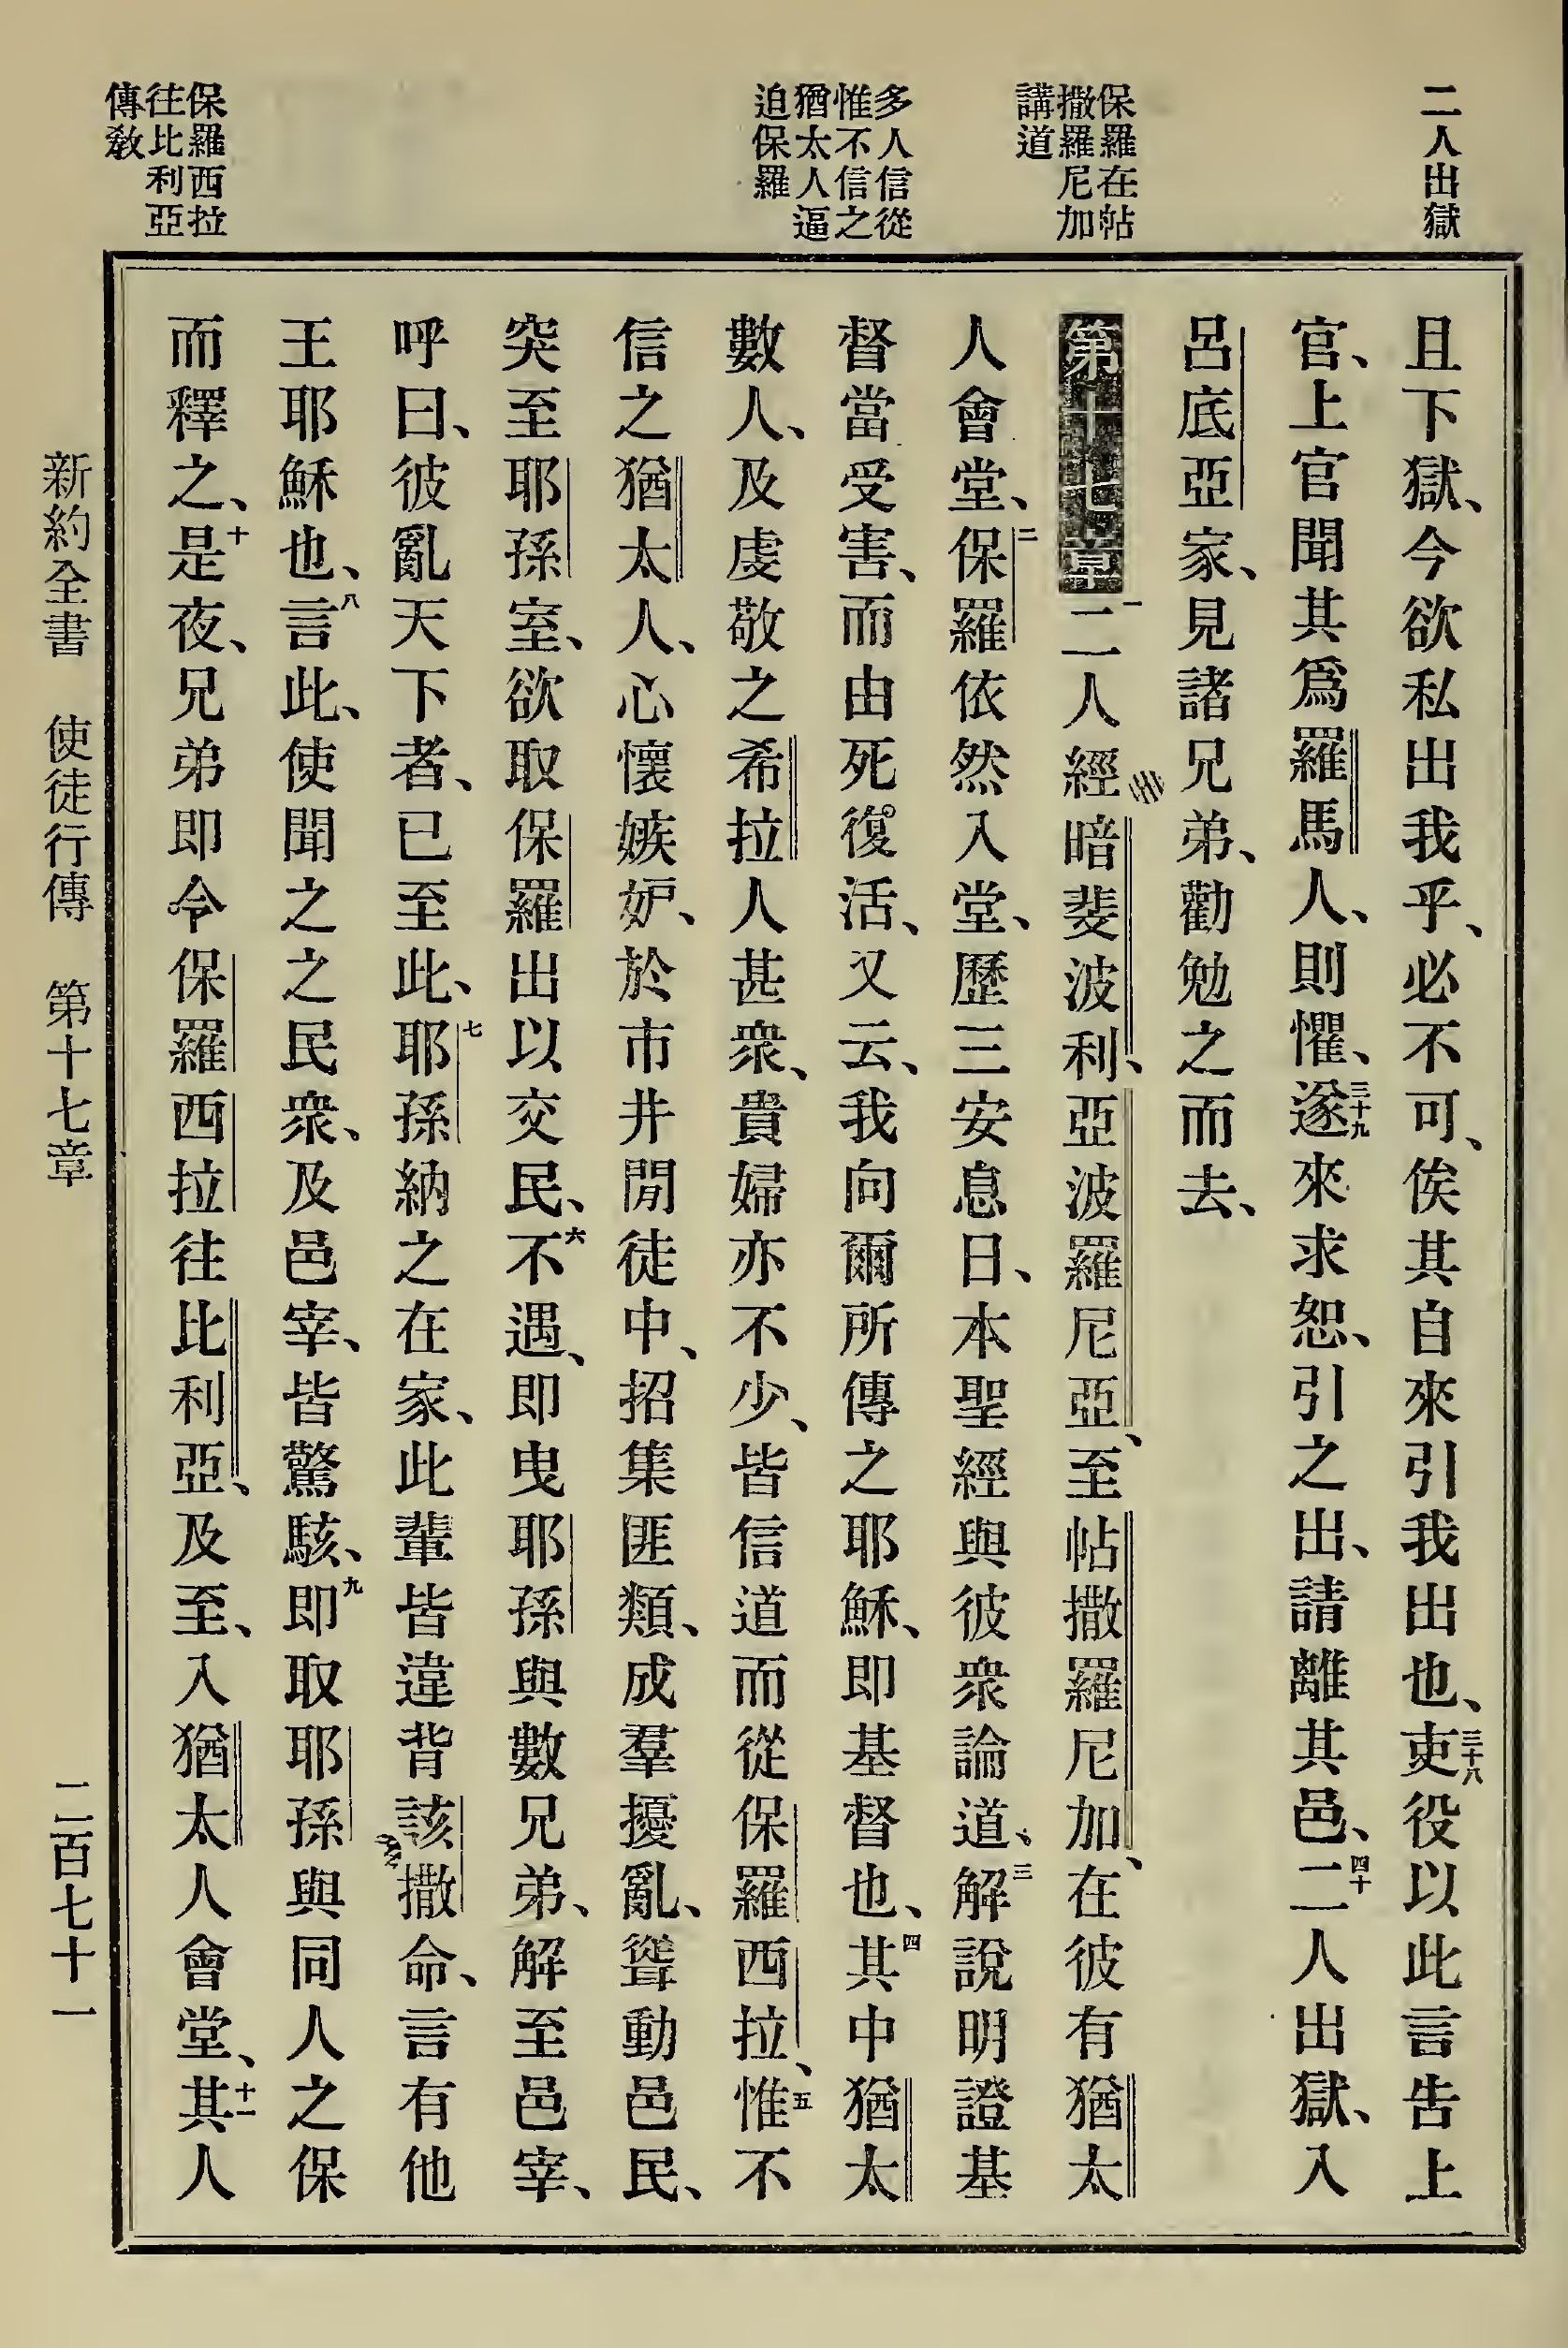 二人出獄
保羅在帖
撒羅尼加
講道
多人信從
惟不信之
猶太人逼
迫保羅
保羅西拉
往比利亞
傳教
且下獄、今欲私出我乎、必不可、俟其自來引我出也、三十八吏役以此言告上
官、上官聞其爲羅馬人、則懼、三十九遂來求恕、引之出、請離其邑、四十二人出獄、入
呂底亞家、見諸兄弟、勸勉之而去、
第十七章一二人經暗斐波利、亞波羅尼亞、至帖撒羅尼加、在彼有猶太
人會堂、二保羅依然入堂、歷三安息日、本聖經與彼衆論道、三解說明證基
督當受害、而由死復活、又云、我向爾所傳之耶穌、即基督也、四其中猶太
數人、及虔敬之希拉人甚衆、貴婦亦不少、皆信道而從保羅西拉、五惟不
信之猶太人、心懷嫉妒、於市井閒徒中、招集匪類、成羣擾亂、聳動邑民、
突至耶孫室、欲取保羅出以交民、六不遇、即曳耶孫與數兄弟、解至邑宰、
呼曰、彼亂天下者、已至此、七耶孫納之在家、此輩皆違背該撒命、言有他
王耶穌也、八言此、使聞之之民衆、及邑宰、皆驚駭、九即取耶孫與同人之保
而釋之、十是夜、兄弟即令保羅西拉往比利亞、及至、入猶太人會堂、十一其人
新約全書 使徒行傳 第十七章 二百七十一